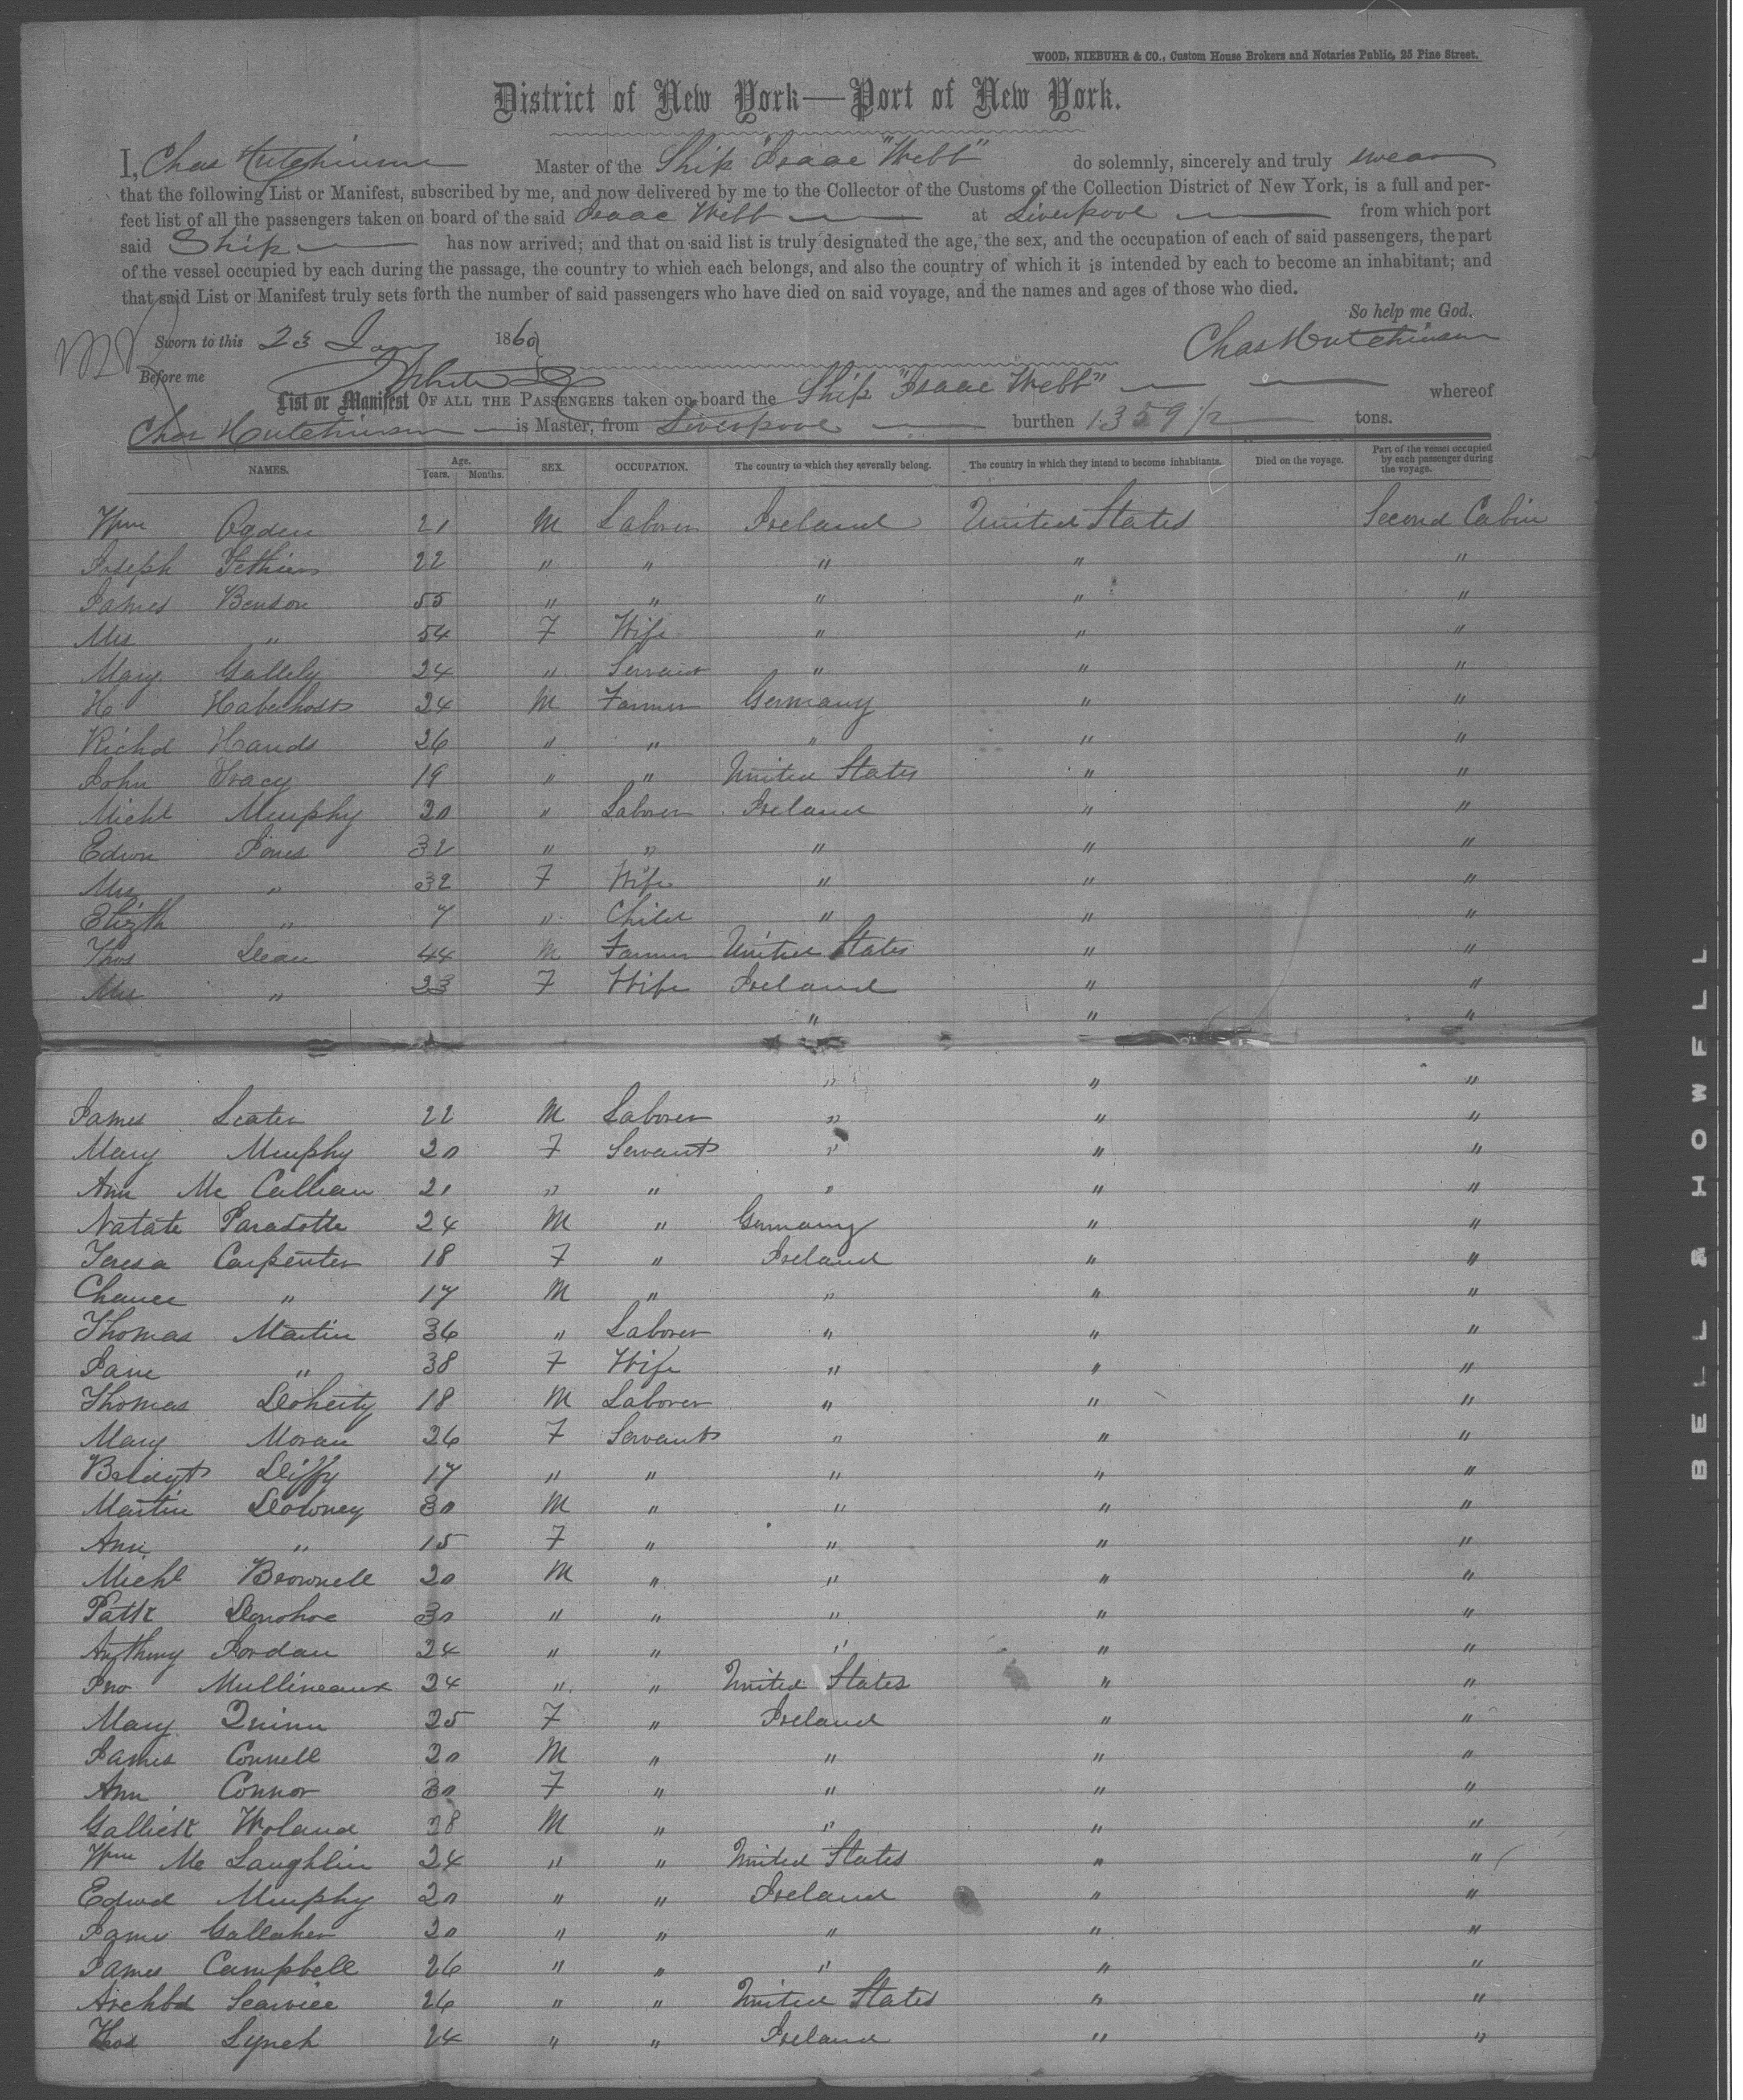 WOOD, NIEBUHR & CO., Custom House Brokers and Notaries Public, 25 Pine Street.
District of New York—Port of New York.
I, Chas Hutchinson Master of the Ship "Isaac Webb" do solemnly, sincerely and truly swear
that the following List or Manifest, subscribed by me, and now delivered by me to the Collector of the Customs of the Collection District of New York, is a full and per-
fect list of all the passengers taken on board of the said Isaac Webb at Liverpool from which port
said Ship has now arrived; and that on said list is truly designated the age, the sex, and the occupation of each of said passengers, the part
of the vessel occupied by each during the passage, the country to which each belongs, and also the country of which it is intended by each to become an inhabitant; and
that said List or Manifest truly sets forth the number of said passengers who have died on said voyage, and the names and ages of those who died.
So help me God,
Sworn to this 23 Jany 1860 Chas Hutchinson
Before me
List or Manifest OF ALL THE PASSENGERS taken on board the Ship "Isaac Webb" whereof
Chas Hutchinson is Master, from Liverpool burthen 1359 1/2 tons.
NAMES. Age. Years. Months. SEX. OCCUPATION. The country to which they severally belong. The country in which they intend to become inhabitants. Died on the voyage. Part of the vessel occupied by each passenger during the voyage.
Wm Ogden 21 M Laborer Ireland United States Second Cabin
Joseph 22 " " " " "
James Benson 55 " " " " "
Mrs " 54 F Wife " " "
Mary Gallely 24 " Servant " " "
H 24 M Farmer Germany " "
Richd Hands 26 " " " " "
John Tracy 19 " " United States " "
Michl Murphy 20 " Laborer Ireland " "
Edwn Jones 32 " " " " "
Mrs " 32 F Wife " " "
Elizth " 7 " Child " " "
Thos Dean 44 M Farmer United States " "
Mrs " 23 F Wife Ireland " "
" " "
" " "
James Scater 22 M Laborer " " "
Mary Murphy 20 F Servant " " "
Ann Mc Callian 21 " " " " "
Natate Paradotte 24 M " Germany " "
Teresa Carpenter 18 F " Ireland " "
" 17 M " " " "
Thomas Martin 36 " Laborer " " "
Jane " 38 F Wife " " "
Thomas Doherty 18 M Laborer " " "
Mary Moran 26 F Servant " " "
Bridgt Diffy 17 " " " " "
Martin Downey 30 M " " " "
Ann " 15 F " " " "
Michl Brownell 20 M " " " "
Patk Donohoe 30 " " " " "
Anthony Jordan 24 " " " " "
Jno Mullineaux 24 " " United States " "
Mary Quinn 25 F " Ireland " "
James Connell 20 M " " " "
Ann Connor 30 F " " " "
28 M " " " "
Wm Mc Laughlin 24 " " United States " "
Edwd Murphy 20 " " Ireland " "
James Gallaher 20 " " " " "
James Campbell 26 " " " " "
Archbd 26 " " United States " "
Thos Lynch 24 " " Ireland " "
BELL & HOWELL